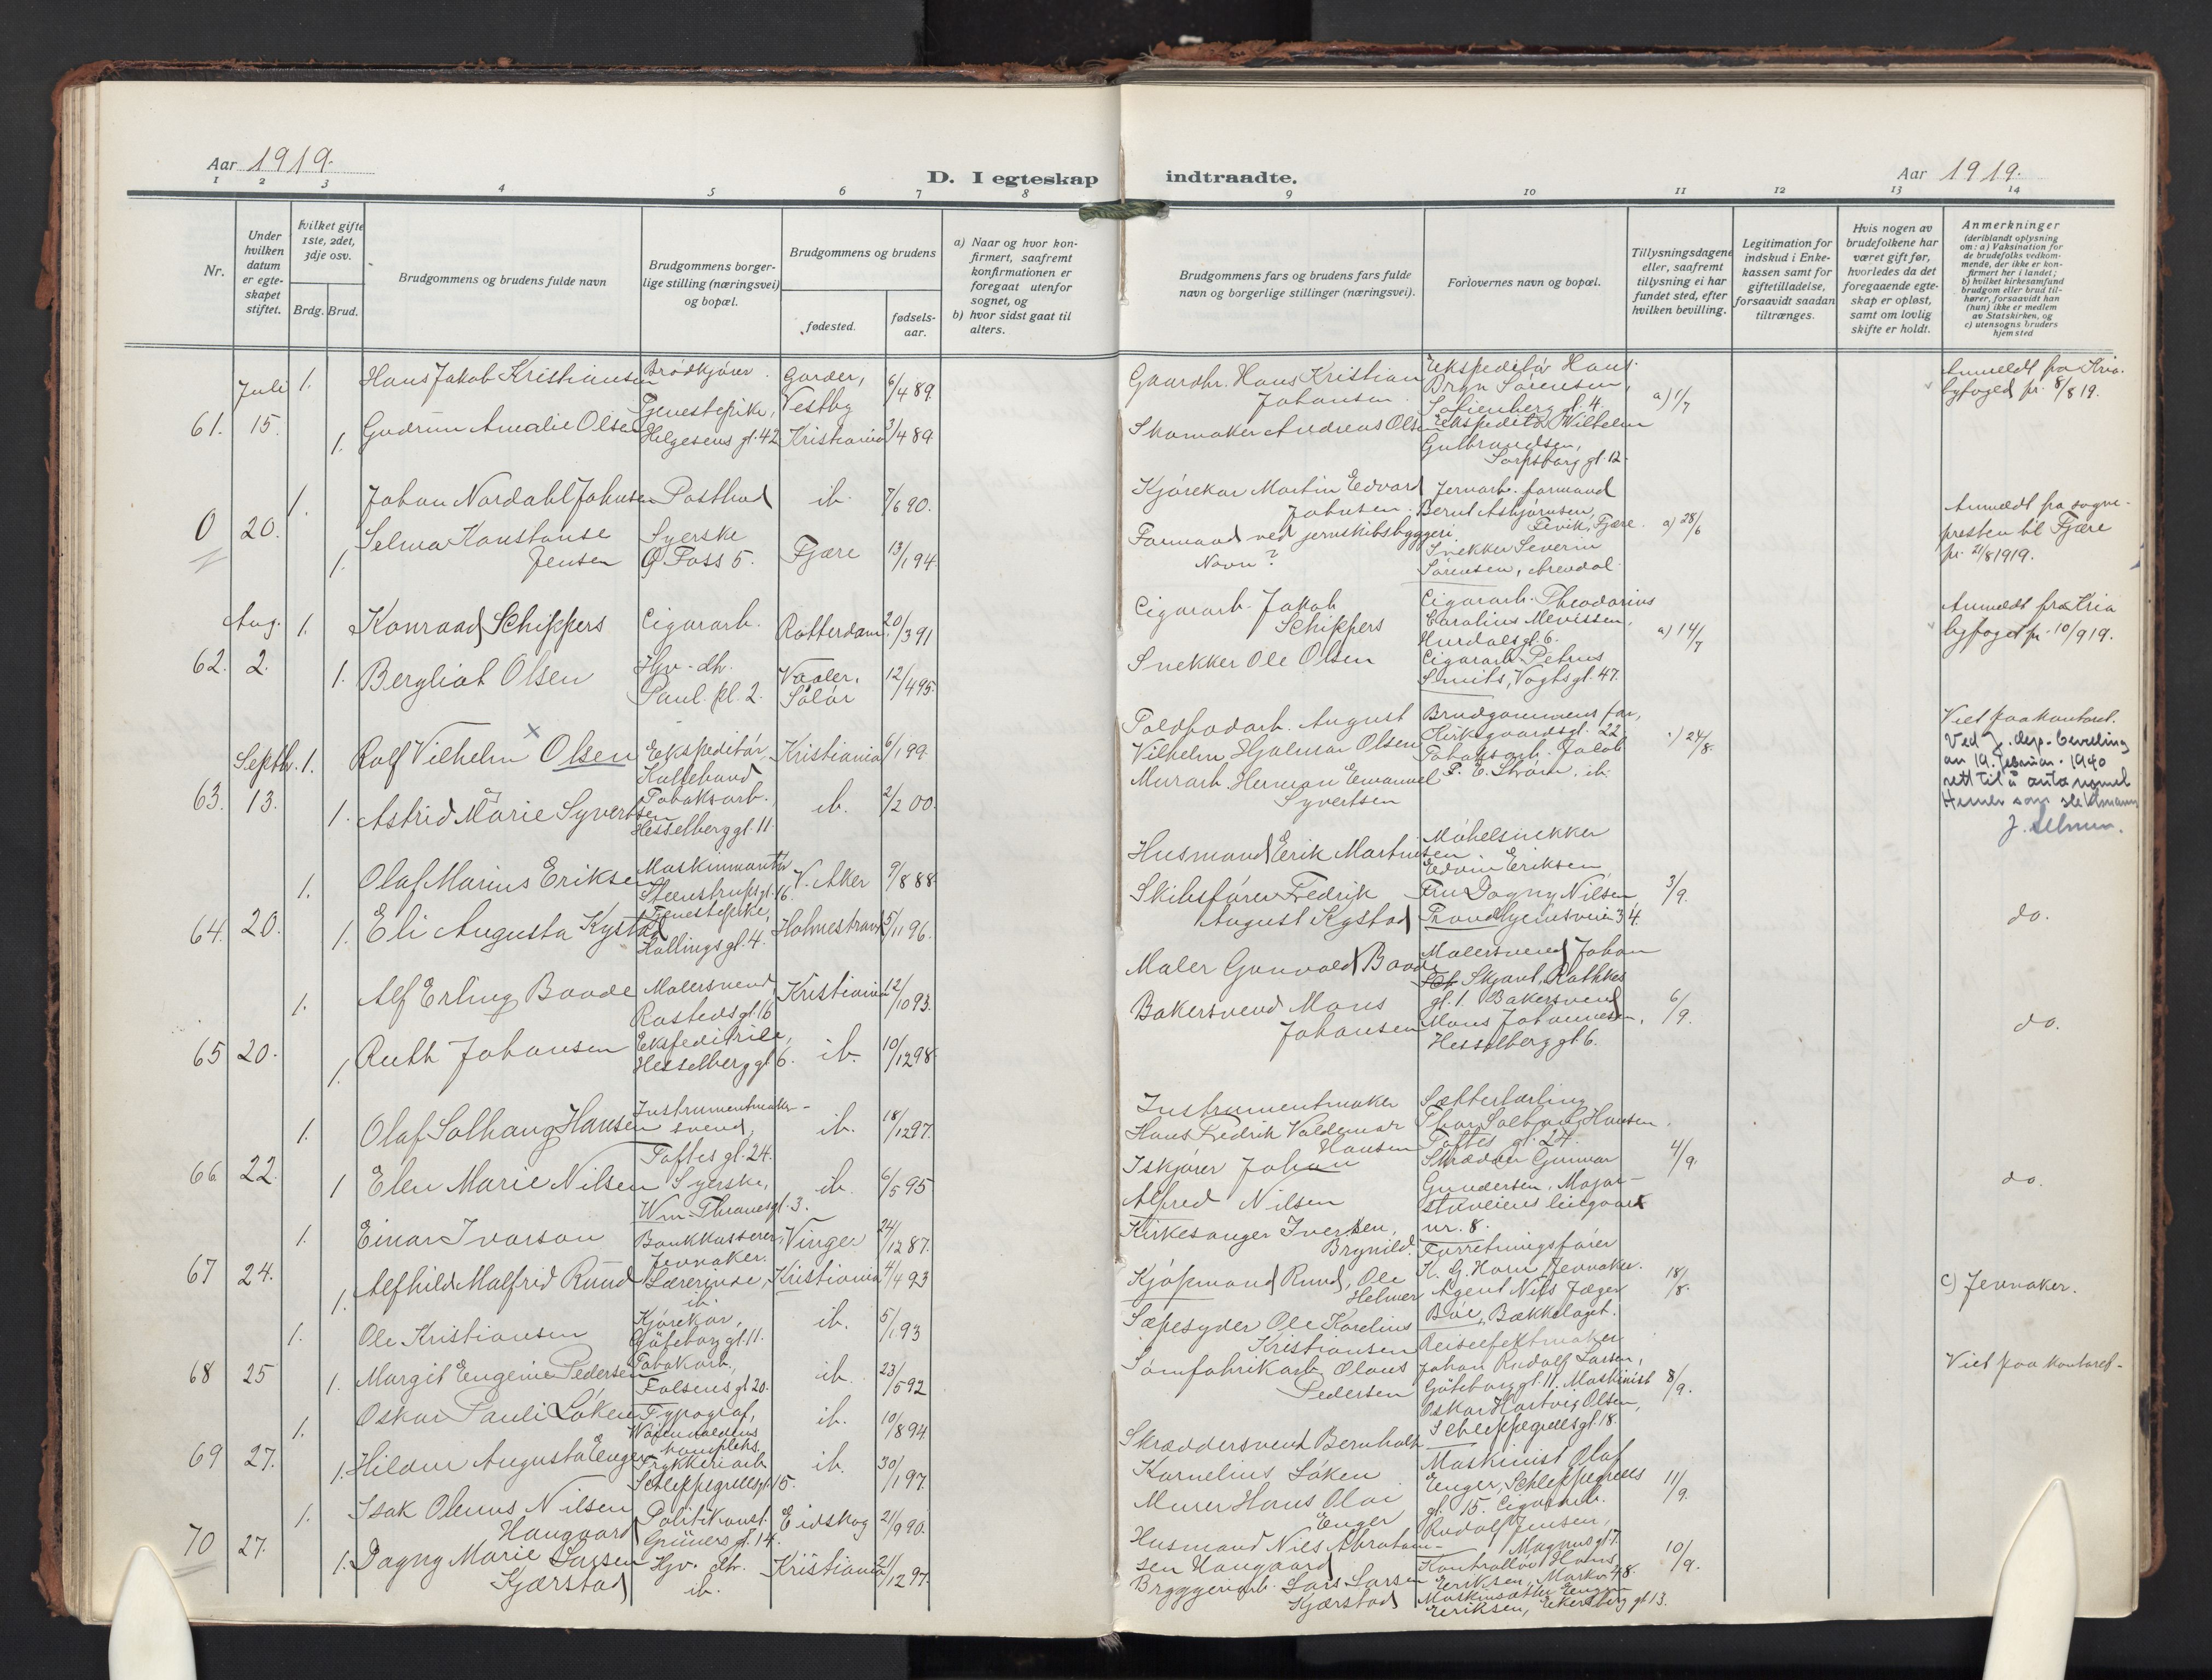 Aar 1919.
D. I egteskap indtraadte.
Aar 1919.
1 2 3 4 5 6 7 8 9 10 11 12 13 14
Nr.
Under hvilken datum er egteskapet stiftet.
hvilket gifte 1ste, 2det, 3dje osv.
Brdg. Brud.
Brudgommens og brudens fulde navn
Brudgommens borgerlige stilling (næringsvei) og bopæl.
Brudgommens og brudens
fødested.
fødselsaar.
a) Naar og hvor konfirmert, saafremt konfirmationen er foregaat utenfor sognet, og
b) hvor sidst gaat til alters.
Brudgommens fars og brudens fars fulde navn og borgerlige stillinger (næringsvei).
Forlovernes navn og bopæl.
Tillysningsdagene eller, saafremt tillysning ei har fundet sted, efter hvilken bevilling.
Legitimation for indskud i Enkekassen samt for giftetilladelse, forsaavidt saadan tiltrænges.
Hvis nogen av brudefolkene har været gift før, hvorledes da det foregaaende egteskap er opløst, samt om lovlig skifte er holdt.
Anmerkninger
(deriblandt oplysning om: a) Vaksination for de brudefolks vedkommende, der ikke er konfirmert her i landet;
b) hvilket kirkesamfund brudgom eller brud tilhører, forsaavidt han (hun) ikke er medlem av Statskirken, og
c) utensogns bruders hjemsted
Juli 1. Hans Jakob Kristiansen Brödkjörer Garder, Vestby 6/4 89. Gaardbr. Hans Kristian Johansen. Ekspeditör Hans Bryn Sörensen, Sofienberg gt. 4. a) 1/7 Anmeldt fra Kria. byfoged pr. 8/8 19.
61. 15. 1. Gudrun Amalie Olsen Tjenestepike, Helgesens gt. 42 Kristiania 3/4 89 Skomaker Andreas Olsen Ekspeditör Wilhelm Gulbrandsen, Sarpsborg gt 12.
1. Johan Nordahl Johnsen Postbud ib. 7/6 90. Kjörekar Martin Edvard Johnsen. Jernarb. formand Bernt Asbjörnsen, Fevik, Fjære. a) 28/6 Anmeldt fra sogne-
presten til Fjære pr. 21/8 1919.
0 20. 1. Selma Konstanse Jensen Syerske Ø Foss 5. Fjære 13/1 94. Formand ved jernskibsbyggeri Navn? Snekker Severin Sörensen, Arendal.
Aug. 1. Konraad Schippers Cigararb. Rotterdam. 20/3 91 Cigararb. Jakob Schippers Cigararb. Theodorius Carolius Mevissen, Hurdals gt. 6. a) 14/7 Anmeldt fra Kria byfoged pr. 10/9 19.
62. 2. 1. Bergliot Olsen Hjv. dtr. Paul. pl. 2. Vaaler, Solör 12/4 95. Snekker Ole Olsen Cigararb. Petrus Smits, Vogts gt. 47.
Septb. 1. Rolf Vilhelm Olsen Ekspeditör, Kristiania 6/1 99. Toldbodarb. August Vilhelm Hjalmar Olsen Brudgommens far, Kirkegaardsgt. 22 24/8. Viet paa kontoret.
Ved J. dep. bevilling av 19. februar. 1940 rett til å anta navnet
63. 13. 1. Astrid Marie Syvertsen Tobaksarb. Hesselberg gt. 11. ib. 2/2 00. Murarb. Herman Emanuel Syvertsen Tobaksarb. Jakob F. E. Ström. ib.
1. Olaf Marius Eriksen Maskinmontör Steenstrups gt. 16. V. Aker 9/8 88. Husmand Erik Martinsen Möbelsnekker Edvin Eriksen 3/9.
64. 20. 1. Eli Augusta Kystad Tjenestepike, Hallings gt. 4. Holmestrand 5/11 96. Skibsförer Fredrik August Kystad Fru Dagny Nilsen, Trondhjemsveien 34. do.
1. Alf Erling Baade Malersvend Rosteds gt. 16 Kristiania 12/10 93. Maler Gunvald Baade Malersvend Johan Skjant, Rathkes gt. 1. 6/9.
65 20. 1. Ruth Johansen Ekspeditrice, Hesselberg gt 6. ib. 10/12 98 Bakersvend Mons Johansen Bakersvend Mons Johannesen, Hesselberg gt 6. do.
1. Olaf Solhaug Hansen Instrumentmaker-svend, Toftes gt. 24. ib. 18/12 97. Instrumentmaker Hans Fredrik Valdemar Hansen Sætterlærling Thor Solhaug Hansen, Toftes gt. 24. 4/9.
66 22. 1 Elen Marie Nilsen Syerske, Wm. Thranes gt. 3. ib. 6/5 95 Iskjörer Johan Alfred Nilsen Skrædder Gunnar Gundersen, Major- nr. 8. do.
1. Einar Ivarson Bankkasserer, Jevnaker. Vinger 24/12 87. Kirkesanger Iversen, Brynild. Forretningsförer K. G. Horn, Jevnaker. 18/8. c) Jevnaker.
67 24. 1. Alfhild Malfrid Ruud Lærerinde, ib. Kristiania 4/4 93 Kjöpmand Ruud, Ole Helmer Agent Nils Jæger Böe, Bækkelaget.
1. Ole Kristiansen Kjörekar, Göteborg gt. 11. ib. 5/1 93 Sæpesyder Ole Karelius Kristiansen Reiseeffektmaker Johan Rudolf Larsen, Göteborg gt. 11. 8/9. Viet paa kontoret.
68 25 1. Margit Eugenie Pedersen Tobakarb., Falsens gt 20. ib. 23/5 92 Sömfabrikarb. Olaus Pedersen Maskinist Oskar Hartvig Olsen, Schleppegrells gt. 18.
1. Oskar Pauli Löken Typograf, ib. 10/8 94 Skræddersvend Bernhalt Kornelius Löken Maskinist Olaf Enger, Schleppegrells gt. 15. 11/9.
69 27. 1. Hildur Augusta Enger Trykkeriarb. Schleppegrells gt. 15. ib. 30/1 97. Murer Hans Olai Enger Cigararb. Rudolf Jensen, Magnus gt 7.
1. Isak Olenus Nilsen Haugaard Politikonst. Grüners gt. 14. Eidskog 21/9 90. Husmand Nils Abrahamsen Haugaard Kontrollör Hans Eriksen, Markv 48. 10/9.
70 27. 1. Dagny Marie Larsen Kjærstad Hjv. dtr. ib. Kristiania 21/12 97. Bryggeriarb. Lars Larsen Kjærstad Eriksen, Ekersberg gt 13.